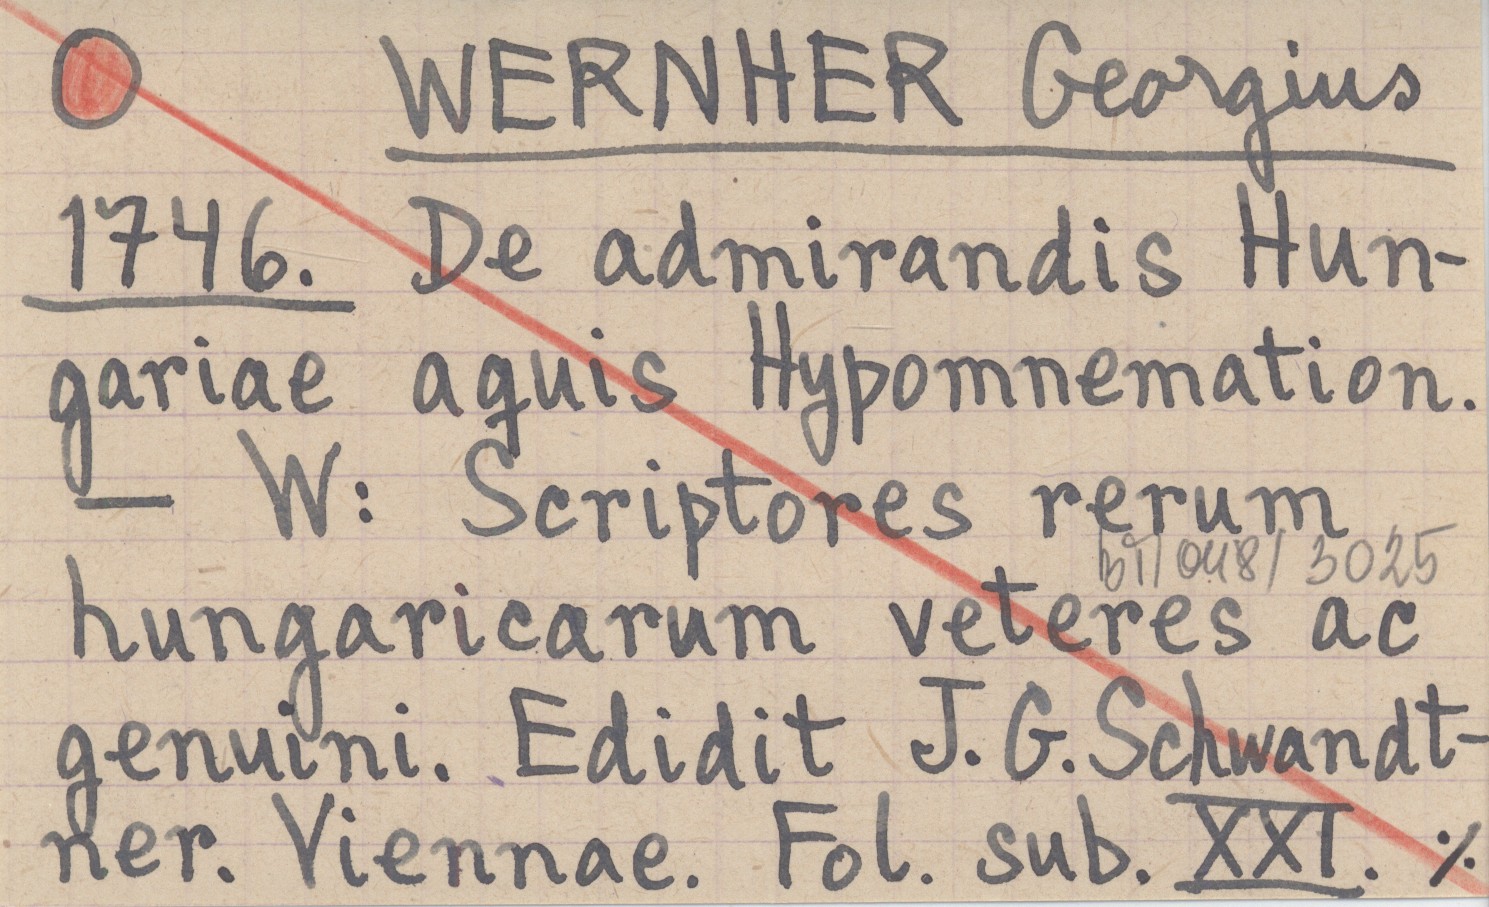 WERNHER Georgius
1746. De admirandis Hun-
gariae aquis Hypomnemation.
— W: Scriptores rerum
bT/048/3025
hungaricarum veteres ac
genuini. Edidit J.G.Schwandt-
ner. Viennae. Fol. sub. XXI. ⁒